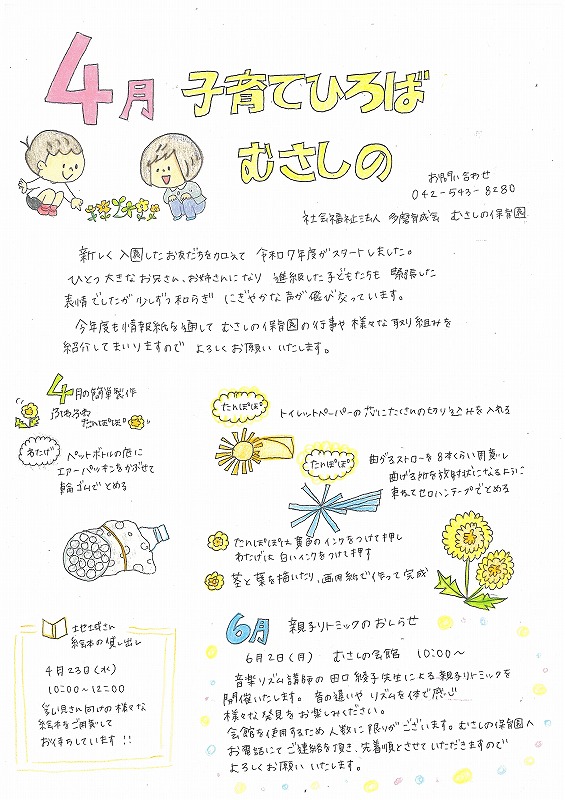 4月 子育てひろば
むさしの
お問い合わせ
042-543-8280
社会福祉法人 多摩育成会 むさしの保育園
新しく入園したお友だちを加えて 令和7年度がスタートしました。
ひとつ大きなお兄さん、お姉さんになり 進級した子どもたちも 緊張した
表情でしたが少しずつ和らぎ にぎやかな声が飛び交っています。
今年度も情報紙を通して むさしの保育園の行事や様々な取り組みを
紹介してまいりますので よろしくお願いいたします。
4月の簡単製作
ふわふわ
たんぽぽ
わたげ
ペットボトルの底に
エアーパッキンをかぶせて
輪ゴムでとめる
たんぽぽ
トイレットペーパーの芯にたくさんの切り込みを入れる
たんぽぽ
曲がるストローを8本くらい用意し
曲げる所を放射状になるように
束ねてセロハンテープでとめる
たんぽぽは黄色のインクをつけて押し
わたげは白いインクをつけ押す
茎と葉を描いたり、画用紙で作って完成
地域さん
絵本の貸し出し
4月23日(水)
10:00~12:00
乳児さん向けの様々な
絵本をご用意して
お待ちしています!!
6月 親子リトミックのおしらせ
6月2日(月) むさしの会館 10:00~
音楽リズム講師の田口綾子先生による親子リトミックを
開催いたします。音の違いやリズムを体で感じ
様々な発見をお楽しみください。
会館を使用するため人数に限りがございます。むさしの保育園へ
お電話にてご連絡を頂き、先着順とさせていただきますので
よろしくお願いいたします。